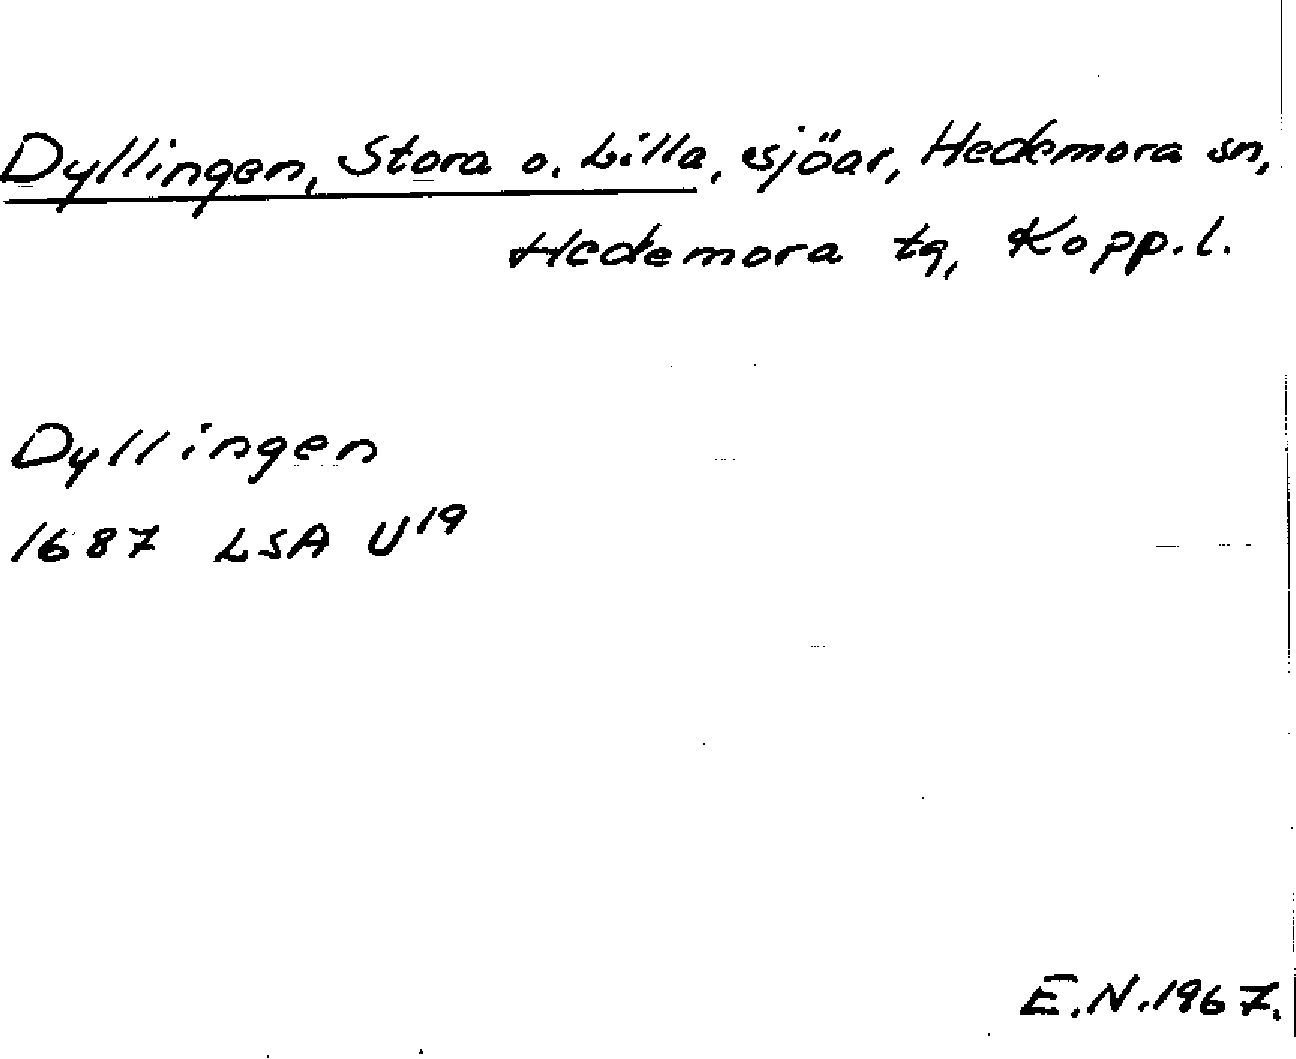 Dyllingen, Stora o. Lilla, sjöar, Hedemora sn,
Hedemora tg, Kopp.l.
Dyllingen
1687 LSA U19
E.N.1967.